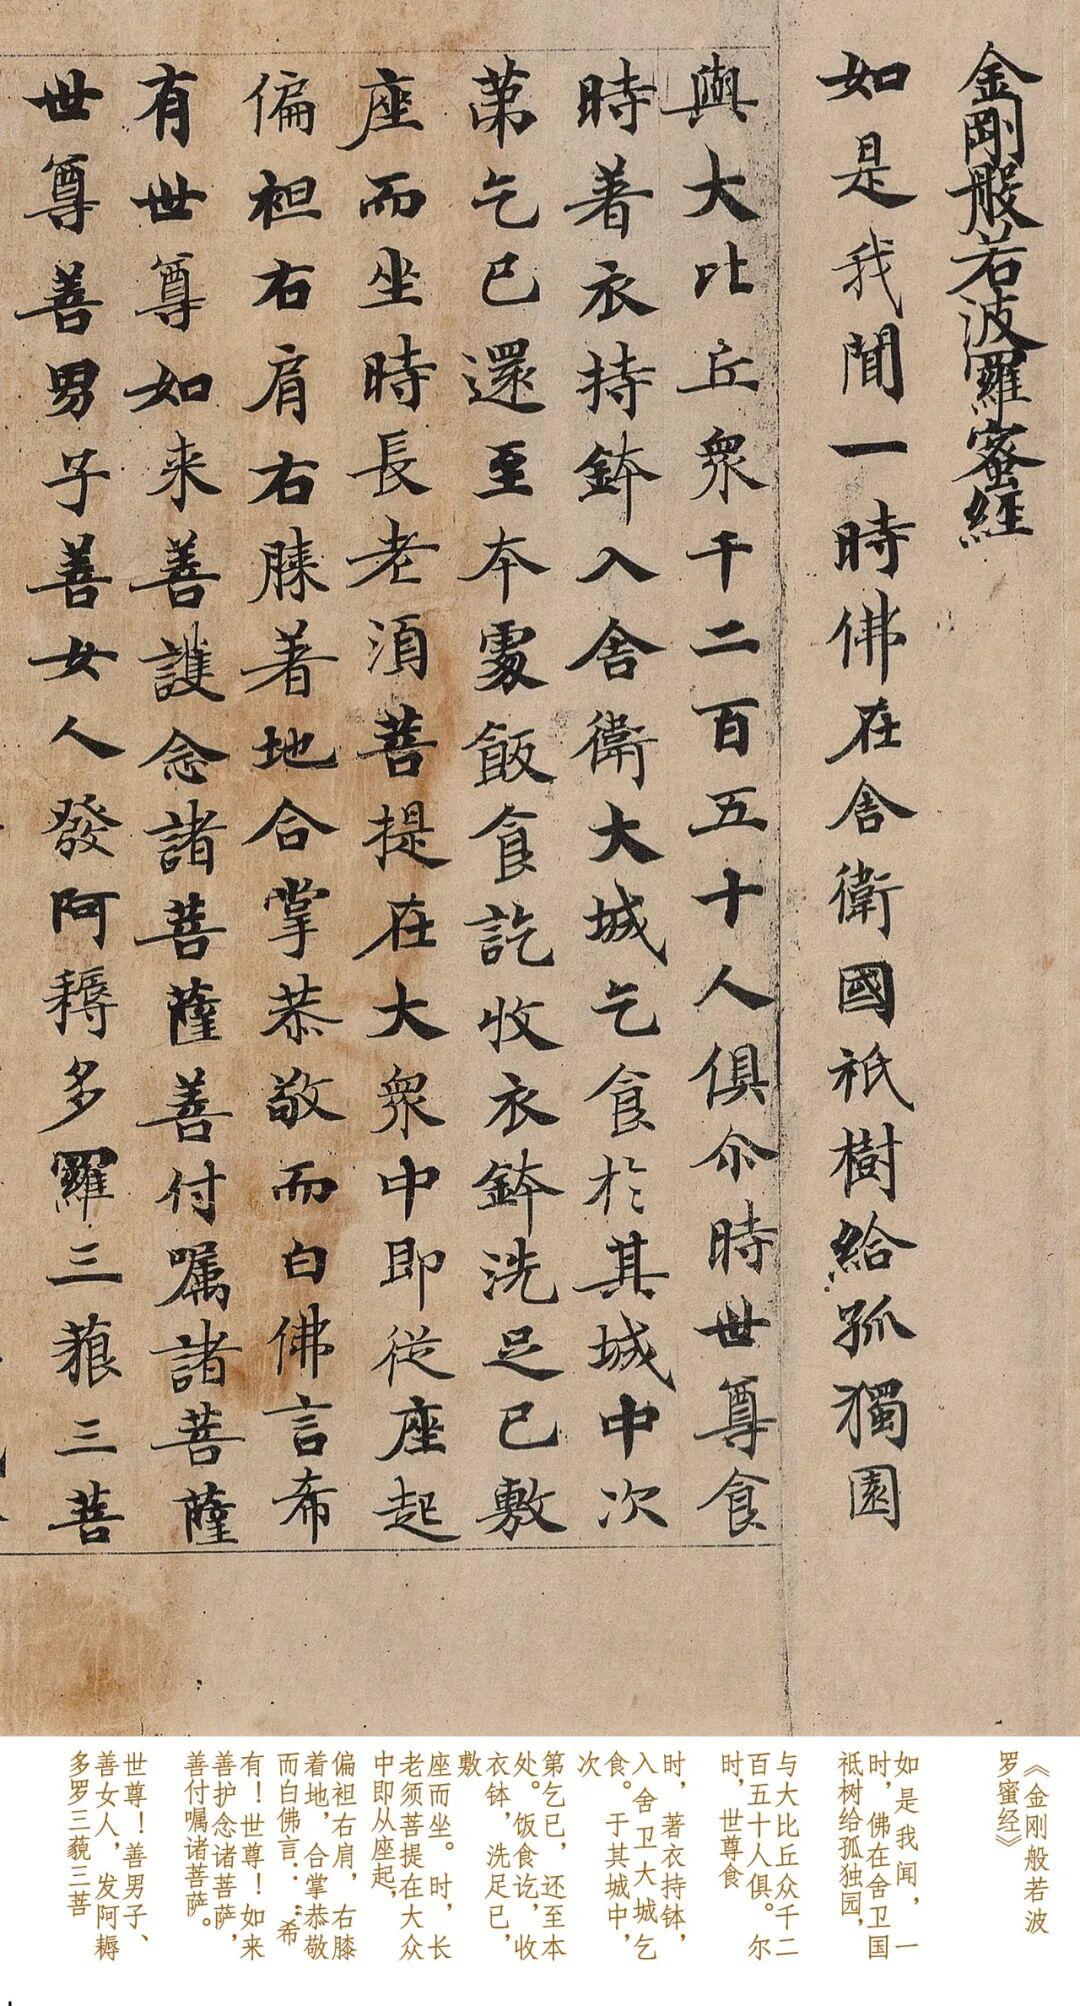 金剛般若波羅蜜經
如是我聞一時佛在舎衛國祇樹給孤獨園
與大比丘衆千二百五十人俱尒時世尊食
時著衣持鉢入舎衛大城乞食於其城中次
苐乞已還至本處飯食訖收衣鉢洗足已敷
座而坐時長老湏菩提在大衆中即從座起
偏袒右肩右膝著地合掌恭敬而白佛言希
有世尊如来善護念諸菩薩善付嘱諸菩薩
世尊善男子善女人發阿耨多羅三藐三菩
《金刚般若波
罗蜜经》
如是我闻，一
时，佛在舍卫国
祇树给孤独园，
与大比丘众千二
百五十人俱。尔
时，世尊食
时，著衣持钵，
入舍卫大城乞
食。于其城中，
次
第乞已，还至本
处。饭食讫，收
衣钵，洗足已，
敷
座而坐。时，长
老须菩提在大众
中即从座起，
偏袒右肩，右膝
着地，合掌恭敬
而白佛言：“希
有！世尊！如来
善护念诸菩萨，
善付嘱诸菩萨。
世尊！善男子、
善女人，发阿耨
多罗三藐三菩